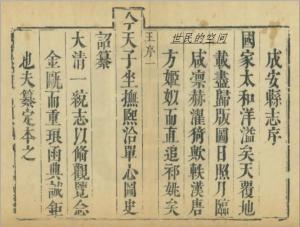 世民的空间
成安縣志序
國家太和洋溢矣天覆地
載盡歸版國日照月臨
咸凛赫濯猗歟軼漢唐
方姬姒而直追祁姚矣
王序一
今天子坐撫熙洽單心圖史
詔纂
大清一統志以備觀覽念
金甌而重琅函典誠鉅
也夫纂定本之